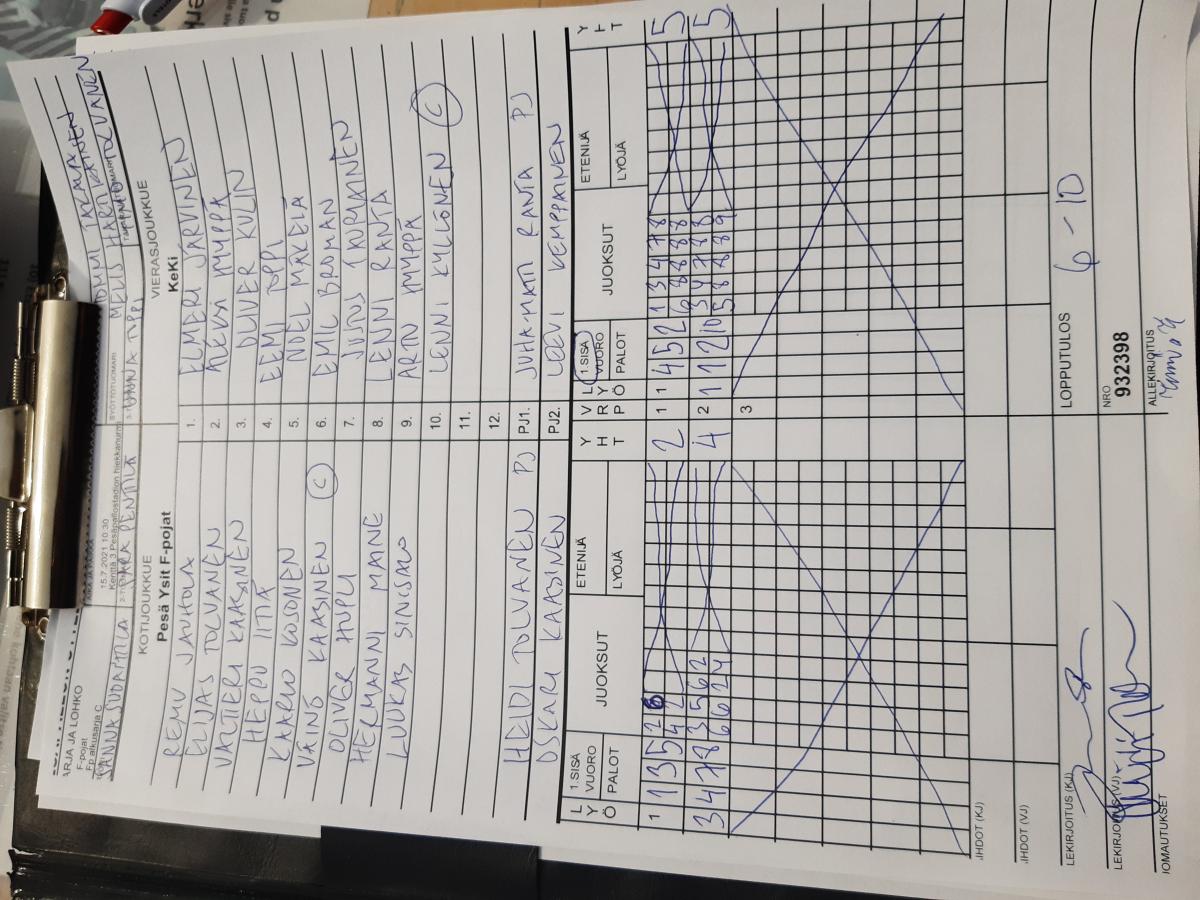 ARJA JA LOHKO
F-pojat
Fp alkusarja C
15.7.2021 10:30
Kenttä 3 Pesäpallostadion hiekkanurmi
SYÖTTÖTUOMARI
KOTIJOUKKUE
Pesä Ysit F-pojat
VIERASJOUKKUE
KeKi
REMU JAUHOLA 1. ELMERI JÄRVINEN
ELIJAS TOLVANEN 2. ALEKSI MYYPPÄ
VALTTERI KAASINEN 3. OLIVER KULIN
HEPPU IITIÄ 4. EEMI TOPPI
KAARLO KOSONEN 5. NOEL MÄKELÄ
VÄINÖ KAASINEN C 6. EMIL BROMAN
OLIVER HUPLI 7. JUJUS TURVAINEN
HERMANNI MAINE 8. LENNI RANTA
LUUKAS SINISALO 9. ARTTU MYYPPÄ
10. LENNI KYLLÖNEN C
11.
12.
HEIDI TOLVANEN PJ PJ1. JUHA-MATTI RANTA PJ
OSKARI KAASINEN PJ2. LEEVI KEMPPAINEN
LYÖ 1.SISÄ VUORO PALOT JUOKSUT ETENIJÄ LYÖJÄ YHT VPR LYÖ 1.SISÄ VUORO PALOT JUOKSUT ETENIJÄ LYÖJÄ YHT
1 1 3 5 2 6 2 1 1 4 5 2 1 3 4 7 8 5
4 2 6 8 8 8 8
3 4 7 8 3 5 6 2 4 2 1 1 2 10 3 4 7 8 5
6 6 2 4 5 8 8 8 9
3
IHDOT (KJ)
IHDOT (VJ)
LEKIRJOITUS (KJ) LOPPUTULOS 6 - 10
LEKIRJOITUS (VJ) NRO 932398
IOMAUTUKSET ALLEKIRJOITUS